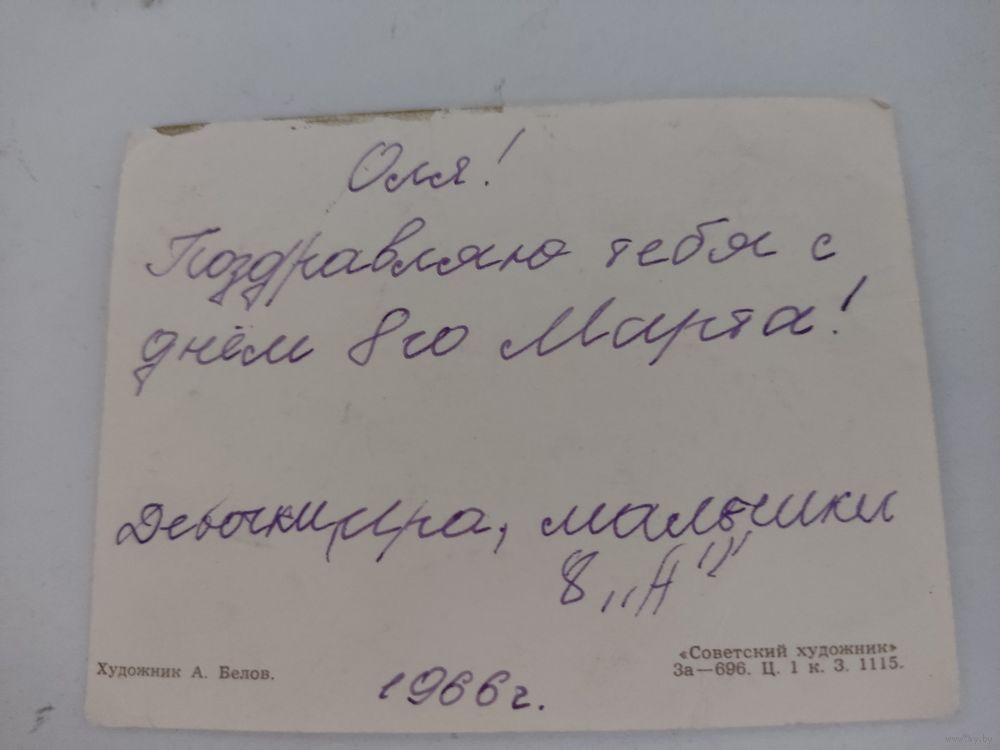 Оля!
Поздравляю тебя с
днём 8го Марта!
Девочки, Ира, мальчики
8 „А"
Художник А. Белов.
1966 г.
«Советский художник»
За—696. Ц. 1 к. З. 1115.